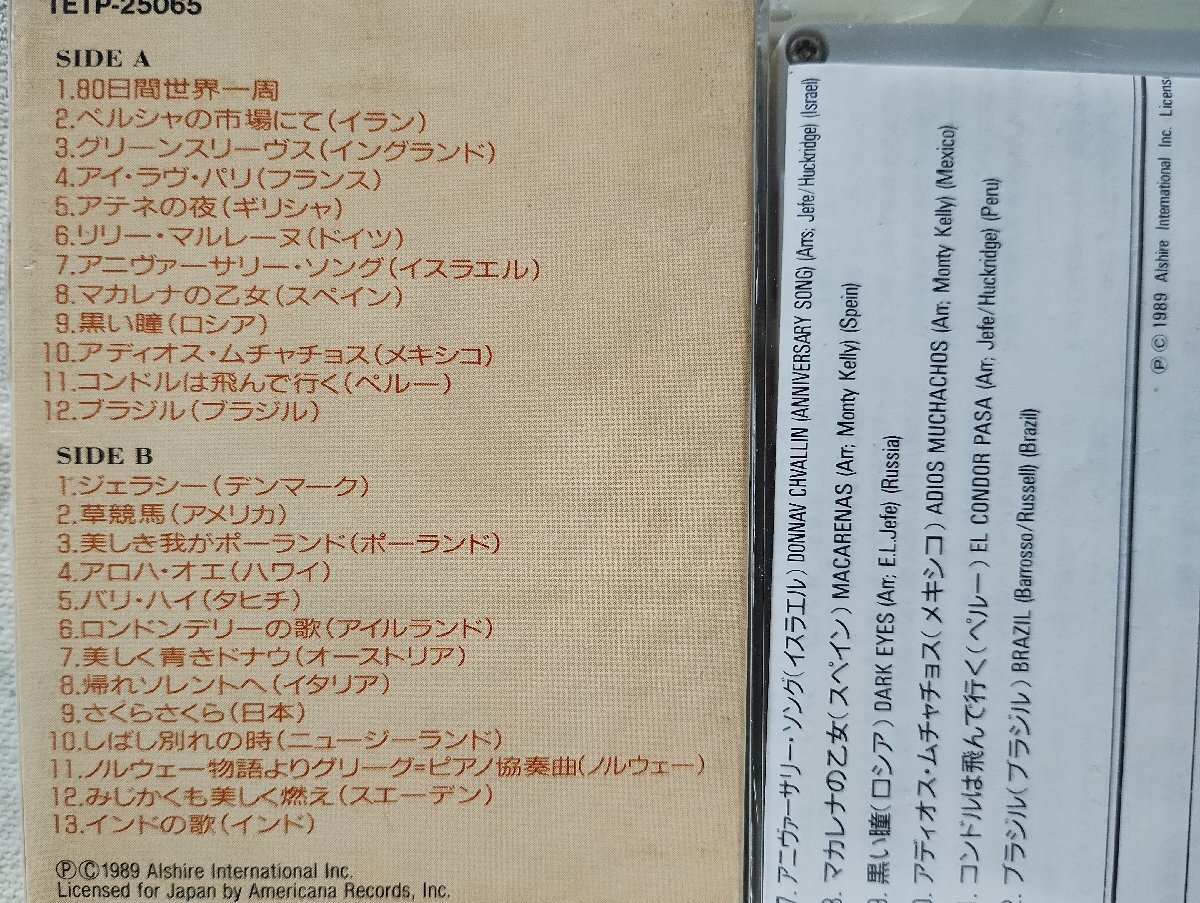 TETP-25065
SIDE A
1.80日間世界一周
2.ペルシャの市場にて(イラン)
3.グリーンスリーヴス(イングランド)
4.アイ・ラヴ・パリ(フランス)
5.アテネの夜(ギリシャ)
6.リリー・マルレーヌ(ドイツ)
7.アニヴァーサリー・ソング(イスラエル)
8.マカレナの乙女(スペイン)
9.黒い瞳(ロシア)
10.アディオス・ムチャチョス(メキシコ)
11.コンドルは飛んで行く(ペルー)
12.ブラジル(ブラジル)
SIDE B
1.ジェラシー(デンマーク)
2.草競馬(アメリカ)
3.美しき我がポーランド(ポーランド)
4.アロハ・オエ(ハワイ)
5.バリ・ハイ(タヒチ)
6.ロンドンデリーの歌(アイルランド)
7.美しく青きドナウ(オーストリア)
8.帰れソレントへ(イタリア)
9.さくらさくら(日本)
10.しばし別れの時(ニュージーランド)
11.ノルウェー物語よりグリーグ=ピアノ協奏曲(ノルウェー)
12.みじかくも美しく燃え(スエーデン)
13.インドの歌(インド)
ⓅⒸ1989 Alshire International Inc.
Licensed for Japan by Americana Records, Inc.
7. アニヴァーサリー・ソング(イスラエル) DONNAV CHVALLIN (ANNIVERSARY SONG) (Arrs; Jefe/Huckridge) (Israel)
8. マカレナの乙女(スペイン) MACARENAS (Arr; Monty Kelly) (Spein)
9. 黒い瞳(ロシア) DARK EYES (Arr; E.L.Jefe) (Russia)
0. アディオス・ムチャチョス(メキシコ) ADIOS MUCHACHOS (Arr; Monty Kelly) (Mexico)
1. コンドルは飛んで行く(ペルー) EL CONDOR PASA (Arr; Jefe/Huckridge) (Peru)
2. ブラジル(ブラジル) BRAZIL (Barrosso/Russell) (Brazil)
ⓅⒸ1989 Alshire International Inc. Licens